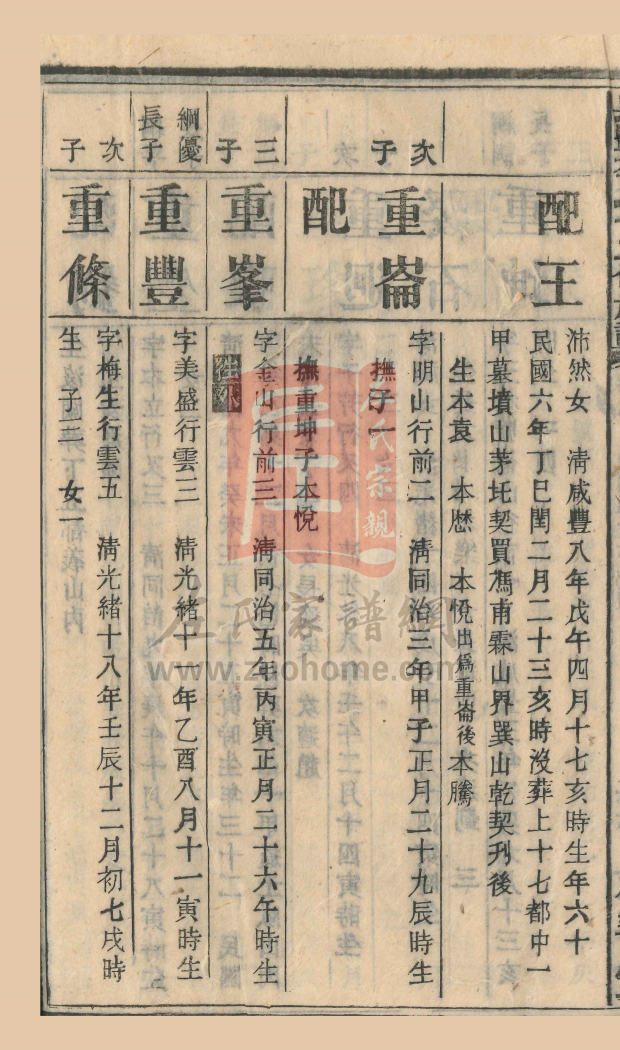 配王
沛然女　清咸豐八年戊午四月十七亥時生年六十
民國六年丁巳閏二月二十三亥時沒葬上十七都中一
甲墓墳山茅圫契買馮甫霖山界巽山乾契刋後
生本袁　本歷　本悅出爲重崙後本騰
次子
重崙
字明山行前二　清同治三年甲子正月二十九辰時生
撫子一
配
撫重坤子本悅
三子
重峯
字金山行前三　清同治五年丙寅正月二十六午時生
往外
綱優長子
重豐
字美盛行雲三　清光緒十一年乙酉八月十一寅時生
次子
重條
字梅生行雲五　清光緒十八年壬辰十二月初七戌時
生　子三　女一
左氏家譜網
www.zuohome.com
宗親